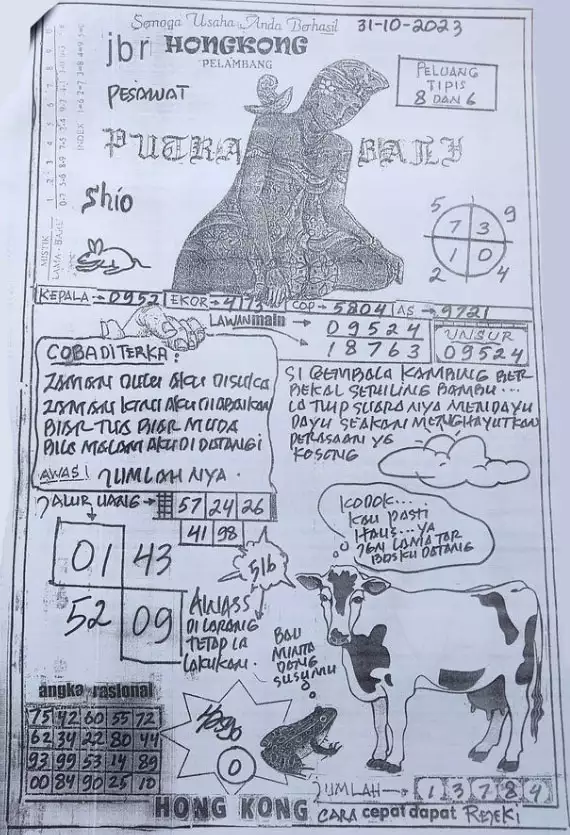 Semoga Usaha Anda Berhasil
31-10-2023
jbr HONGKONG
PELAMBANG
PELUANG
TIPIS
8 DAN 6
PESAWAT
PUTRA BALI
Shio
5 9
7 3
1 0
2 4
MISTIK
LAMA - BARU
INDEX
KEPALA → 0952 EKOR → 4173 COP → 5804 AS → 9721
LAWAN main → 09524
18763
UNSUR
09524
COBA DITERKA :
ZAMAN DULU AKU DISUKA
ZAMAN KINI AKU DIABAIKAN
BIAR TUA BIAR MUDA
BILA MALAM AKU DI DATANGI
AWAS! JUMLAH NYA .
SI GEMBALA KAMBING BER
BEKAL SERULING BAMBU...
LA TIUP SUARA NYA MENDAYU
DAYU SEAKAN MENGHAYUTKAN
PERASAAN YG
KOSONG
JALUR UANG → 57 24 26
41 98
01 43
52 09
516
KODOK...
KAU PASTI
HAUS... YA
JGN LAMA TAR
BOSKU DATANG
AWASS
DI LARANG
TETAP LA
LAKUKAN .
BAU
MINTA
DONG
SUSUMU
angka rasional
75 42 60 55 72
62 34 22 80 44
93 99 53 14 89
00 84 90 25 10
0
JUMLAH → 1 3 7 8 4
HONG KONG CARA cepat dapat REJEKI